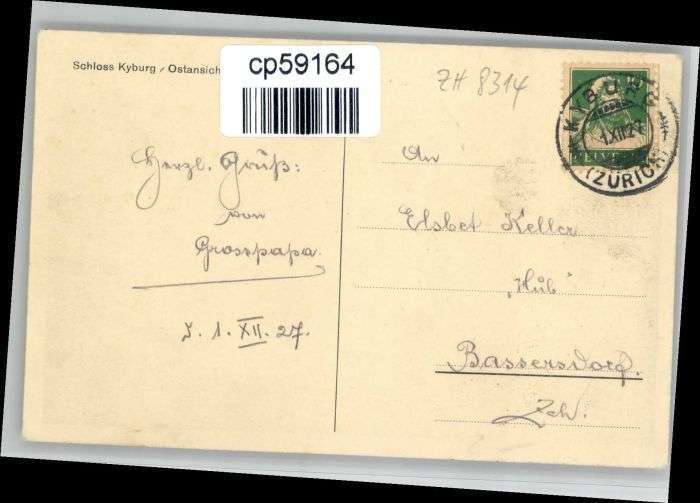 Schloss Kyburg / Ostansich
cp59164
ZH 8314
KYBURG
1.XII.27
(ZÜRICH)
HELVETIA
Herzl. Gruß:
von
Grosspapa.
1. XII. 27.
An
Elsbet Keller
„Hŭb"
Bassersdorf.
Zch.